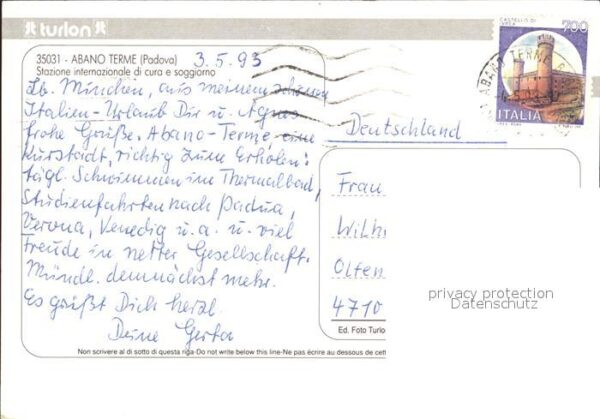 turlon
35031 - ABANO TERME (Padova)
Stazione internazionale di cura e soggiorno
3.5.93
Lb. Minchen, aus meinem schönen
Italien-Urlaub Dir u. Agnes
frohe Grüße. Abano-Terme, eine
Kurstadt, richtig zum Erholen:
tägl. Schwimmen im Thermalbad,
Studienfahrten nach Padua,
Verona, Venedig u.a. u. viel
Freude in netter Gesellschaft.
Mündl. demnächst mehr.
Es grüßt Dich herzl.
Deine Gerta
CASTELLO DI
700
ABANO TERME
ITALIA
Deutschland
Frau
Wilh
Olfen
4710
privacy protection
Datenschutz
Ed. Foto Turlo
Non scrivere al di sotto di questa riga-Do not write below this line-Ne pas écrire au dessous de cett